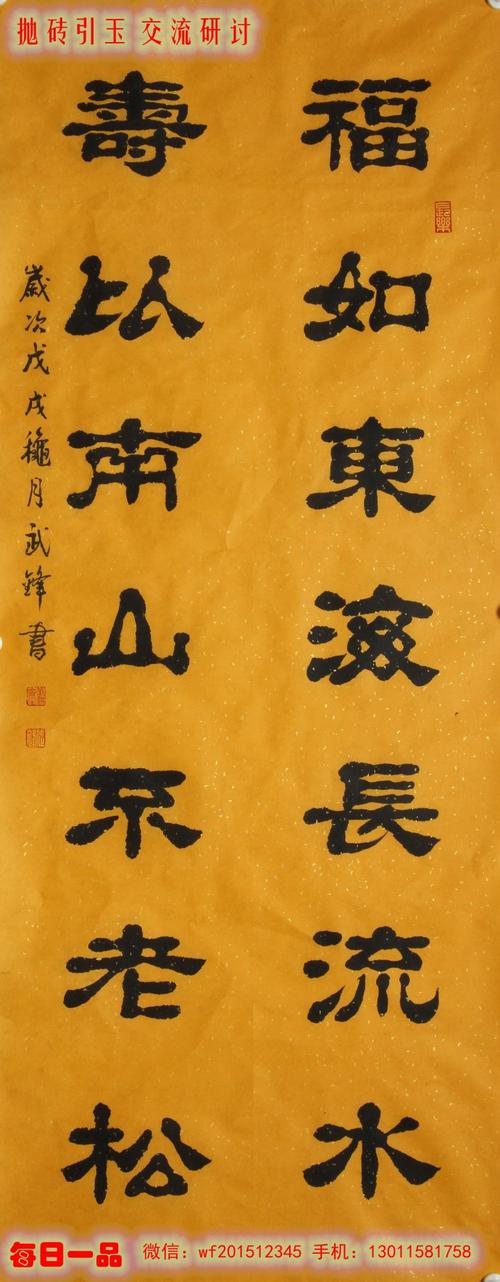 抛砖引玉 交流研讨
福如東海長流水
長樂
壽比南山不老松
歲次戊戌龝月武鋒書
每日一品 微信：wf201512345 手机：13011581758